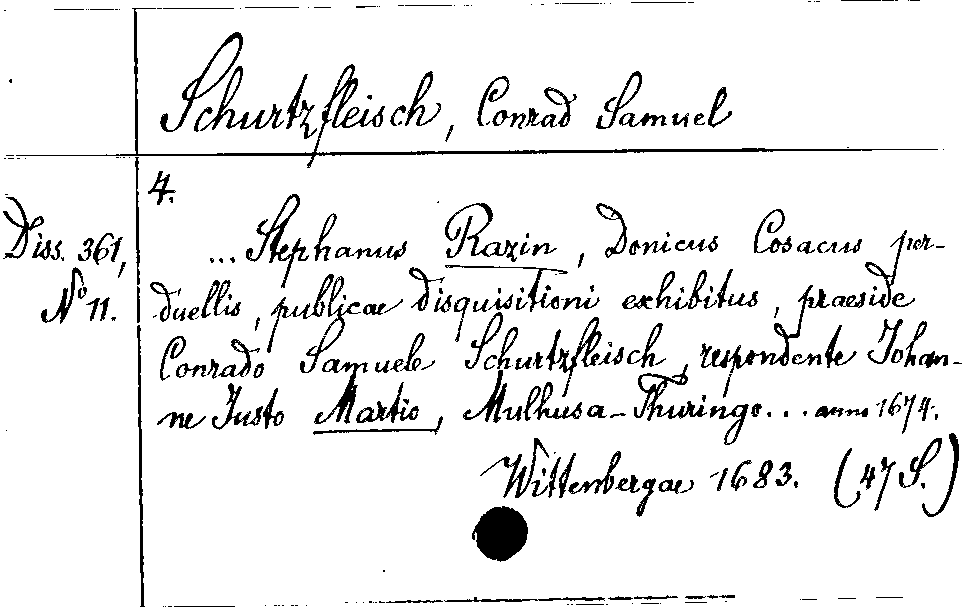 Schurtzfleisch, Conrad Samuel
4.
Diss. 361,
No 11.
... Stephanus Razin, Donicus Cosacus per-
duellis, publicae disquisitioni exhibitus, praeside
Conrado Samuele Schurtzfleisch, respondente Johan-
ne Justo Martio, Mulhusa-Thuringo... anno 1674.
Wittenbergae 1683. (47 S.)